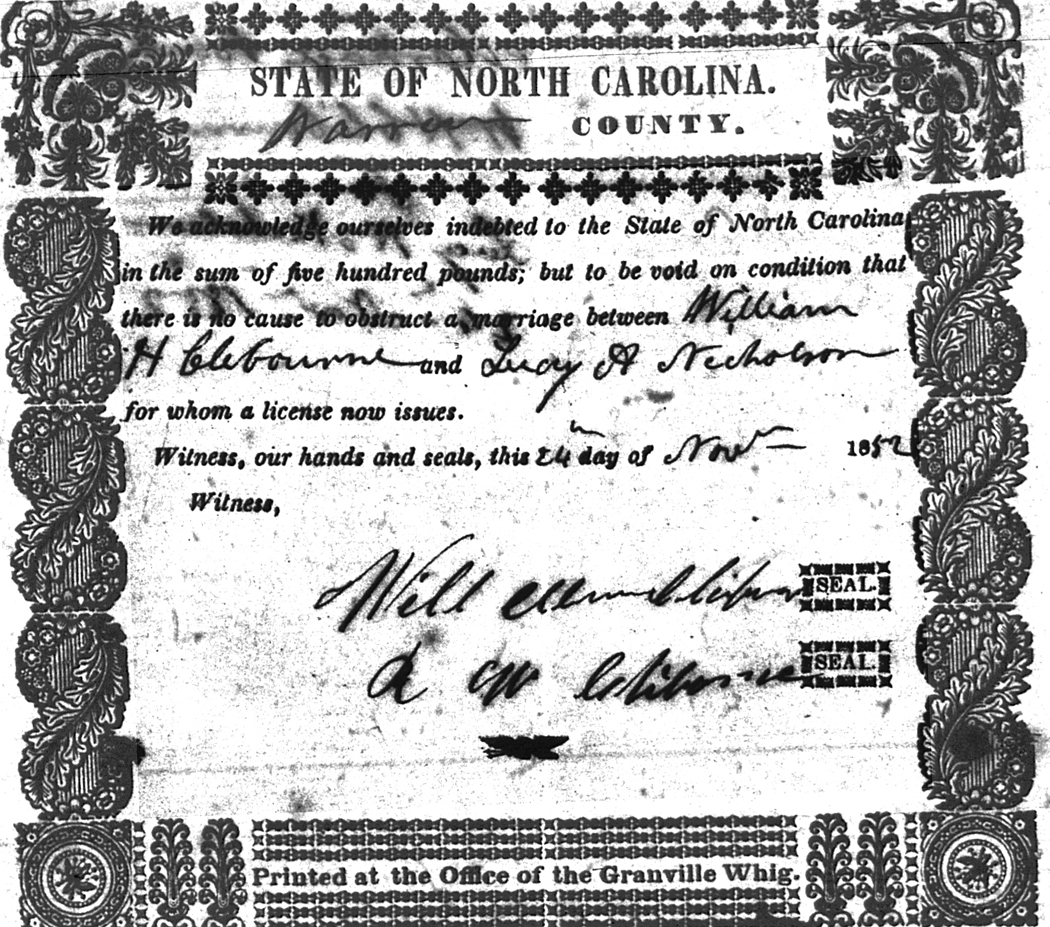 STATE OF NORTH CAROLINA.
Warren COUNTY.
We acknowledge ourselves indebted to the State of North Carolina
in the sum of five hundred pounds; but to be void on condition that
there is no cause to obstruct a marriage between William
H Clebourne and Lucy A Nicholson
for whom a license now issues.
Witness, our hands and seals, this 24th day of Novr 1852
Witness,
Will SEAL.
SEAL.
Printed at the Office of the Granville Whig.